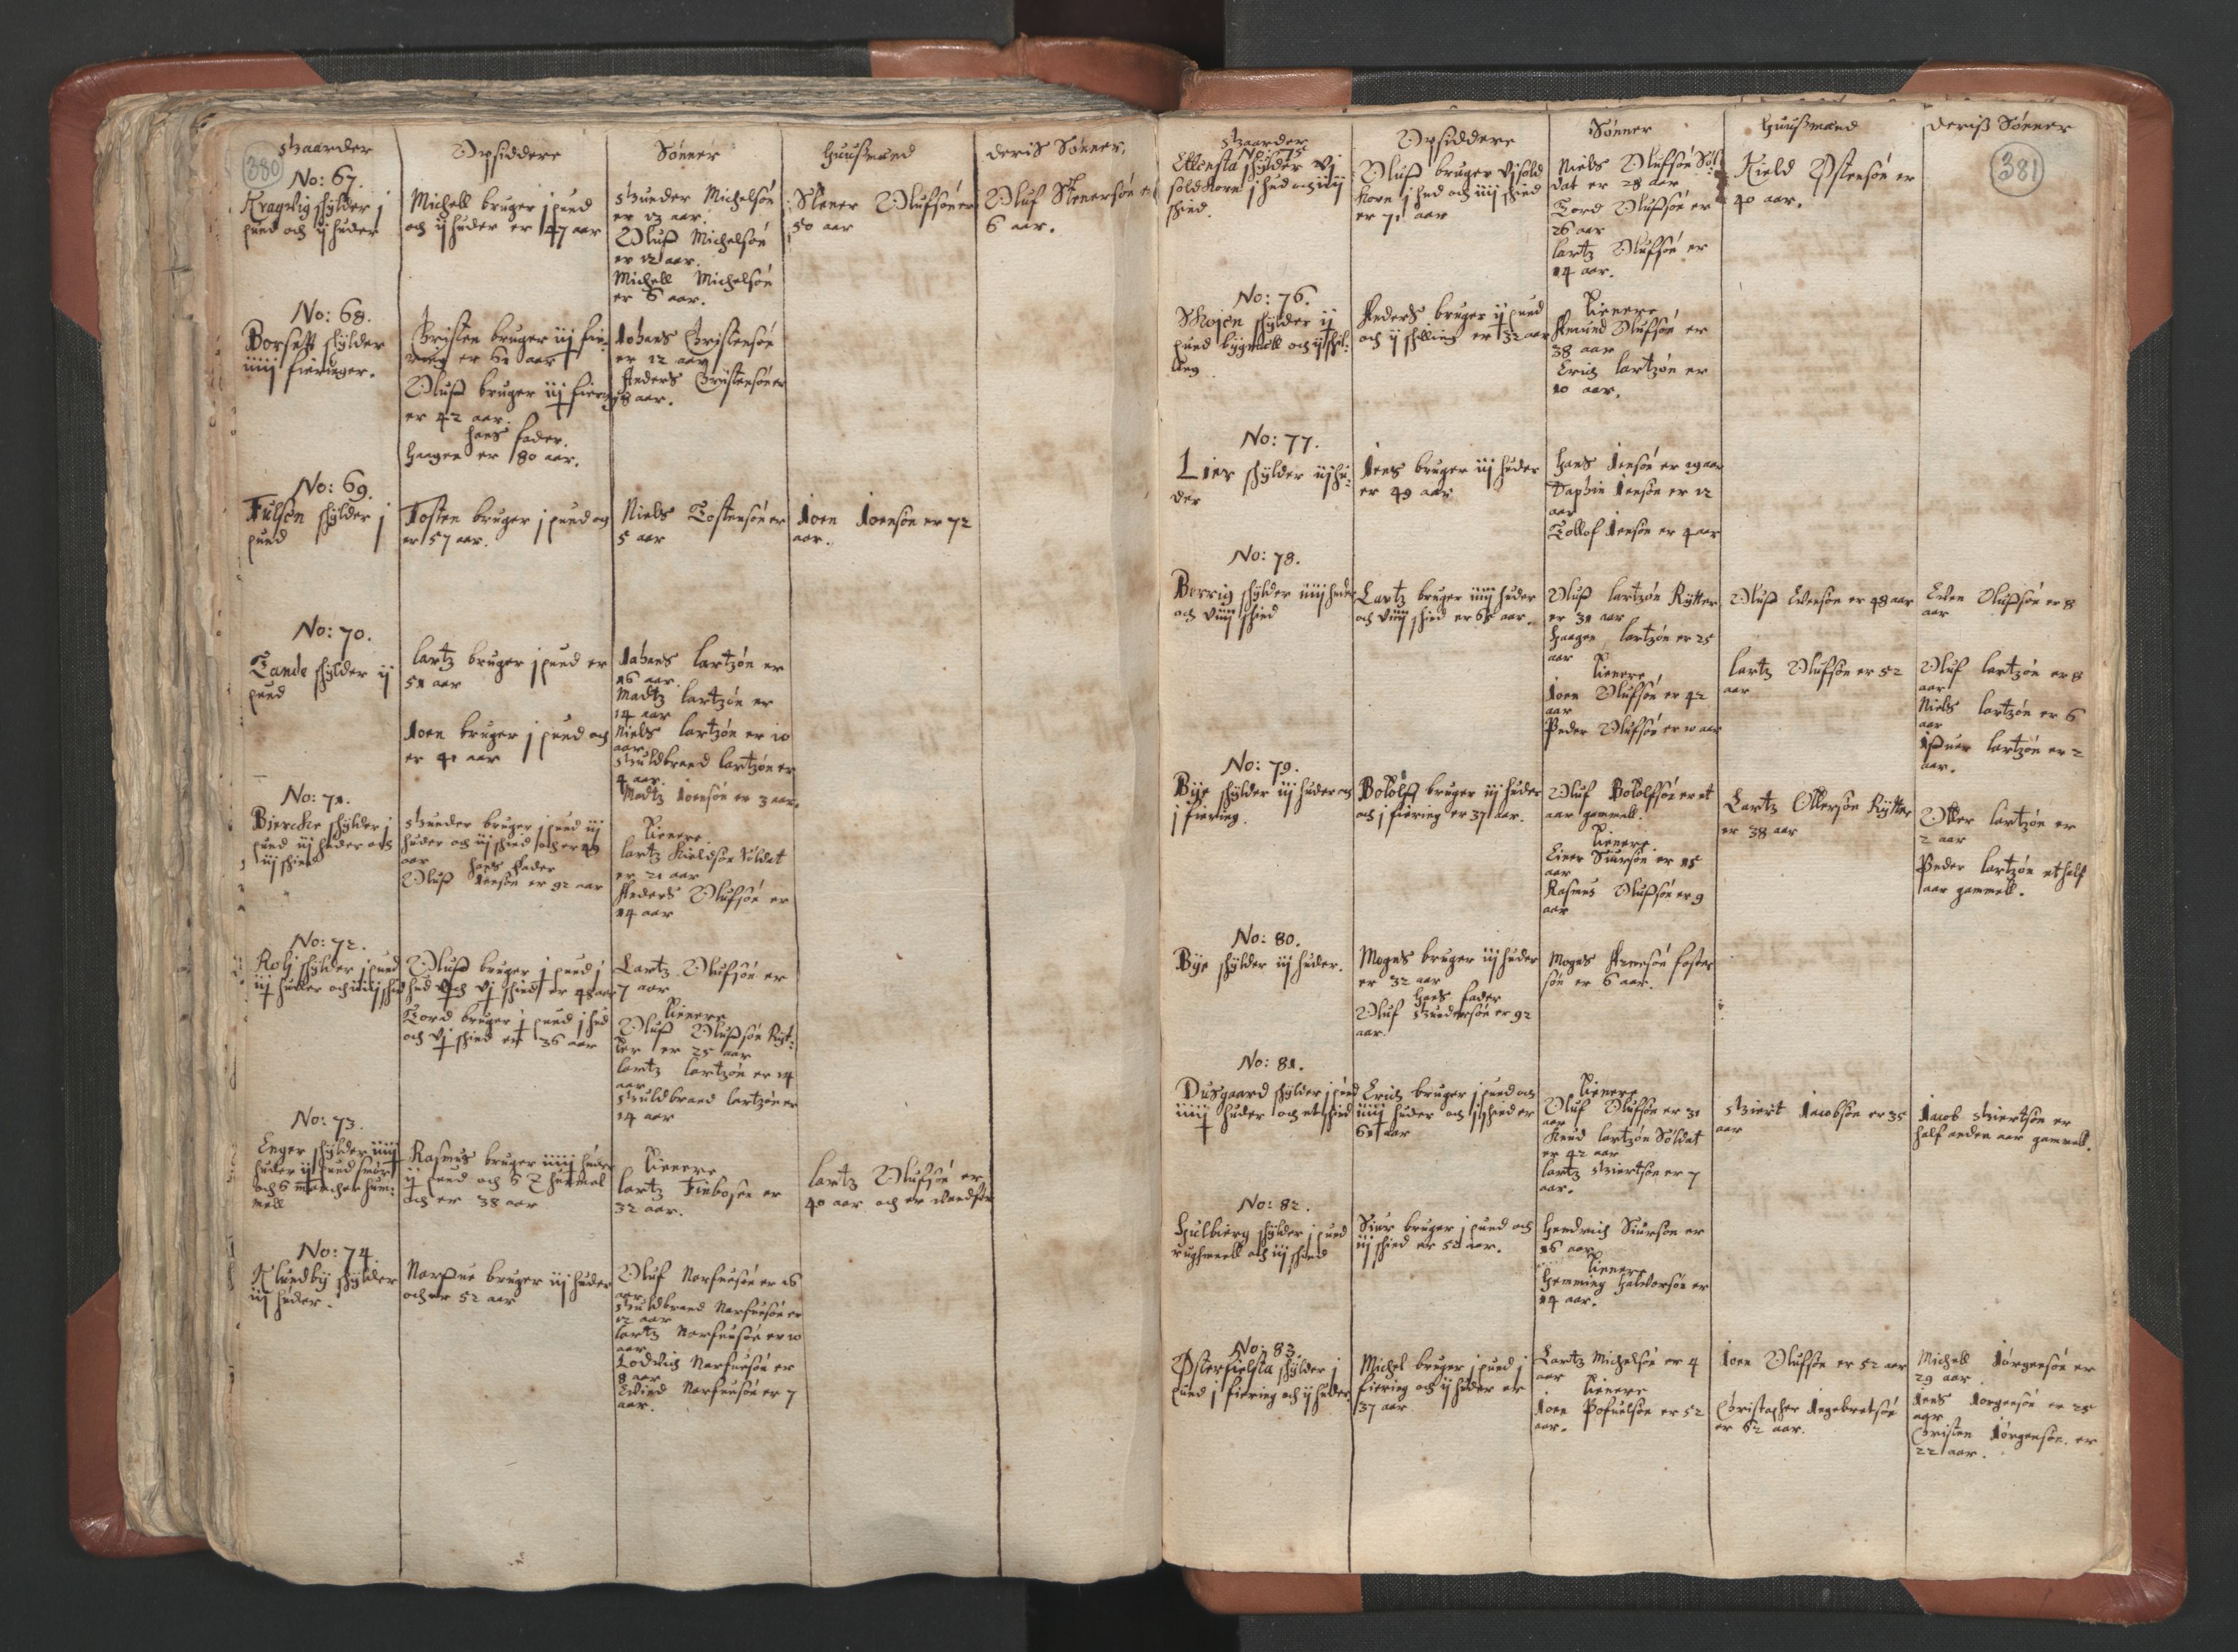 380
Gaarder Opsiddere Sønner Huusmænd deris Sønner.
No: 67.
Kragvig schylder j
pund och ij huder
Michell bruger j pund
och ij huder er 47 aar
Gunder Michelsøn
er 13 aar.
Oluff Michelsøn
er 12 aar.
Michell Michelsøn
er 6 aar.
Stener Olufsøn er
50 aar
Oluf Stenersøn er
6 aar.
No: 68.
Borsett schylder
iiij fieringer.
Christen bruger iij fie-
ring er 61 aar
Oluff bruger iij fiering
er 42 aar.
hans fader.
Haagen er 80 aar.
Johans Christensøn
er 12 aar
Anders Christensøn er
8 aar.
No: 69.
Fulsøn schylder j
pund
Tosten bruger j pund og
er 57 aar.
Niels Tostensøn er
5 aar
Joen Joensøn er 72
aar.
No: 70.
Tande schylder ij
pund
Lartz bruger j pund er
51 aar
Joen bruger j pund och
er 41 aar
Johans Lartzøn er
16 aar.
Madtz Lartzøn er
14 aar
Niels Lartzøn er 10
aar
Guldbrand Lartzøn er
4 aar.
Madtz Joensøn er 3 aar.
No: 71.
Biercke schylder j
pund iij huder och
iij schind
Gunder bruger j pund iij
huder och iij schind och er 49
aar
hans Fader
Oluff Jensøn er 92 aar
Tienere
Lartz Kieldsøn Soldat
er 21 aar
Anders Olufsøn er
14 aar
No: 72.
Rolj schylder j pund
iij huder och iiij schind
Oluff bruger j pund j
hud och vj schind er 48 aar
Tord bruger j pund j hud
och vj schind er 36 aar
Lartz Olufsøn er
7 aar
Tienere
Oluff Oluffsøn Ryt-
ter er 25 aar
Lartz Lartzøn er 14
aar
Guldbrand Lartzøn er
14 aar
No: 73.
Enger schylder iiij
huder ij pund smør
och 6 march hum-
mell
Rasmus bruger iiij huder
ij pund och 6 hummel
och er 38 aar
Tienere
Lartz Finbosøn er
32 aar.
Lartz Olufsøn er
40 aar och er vandför
No: 74.
Klundby schylder
iij huder.
Narfue bruger iij huder
och er 52 aar
Oluf Narfuesøn er 16
aar
Guldbrand Narfuesøn er
12 aar
Lartz Narfuesøn er 10
aar
Lodvich Narfuesøn er
8 aar
Evind Narfuesøn er 7
aar.
381
Gaarder Opsiddere Sønner Huusmænd deriss Sønner
No: 75
Ellensta schylder vj
sold Korn j hud och iiij
schind.
Oluff bruger vj sold
Korn j hud och iiij schind
er 71 aar
Niels Olufsøn Sol-
dat er 28 aar
Tord Oluffsøn er
26 aar
Lartz Olufsøn er
14 aar.
Kield Østensøn er
40 aar.
No: 76.
Skojen schylder ij
pund bygmell och ij schil-
ling
Anders bruger ij pund
och ij schilling er 32 aar
Tienere
Amund Olufsøn er
38 aar
Erich Lartzøn er
10 aar.
No: 77.
Lier schylder iij hu-
der
Jens bruger iij huder
er 49 aar
Hans Jensøn er 19 aar
Daphin Jensøn er 12
aar
Tollof Jensøn er 4 aar
No: 78.
Berrig schylder iiij huder
och viij schind
Lartz bruger iiij huder
och viij schind er 65 aar.
Oluff Lartzøn Rytter
er 31 aar
Haagen Lartzøn er 25
aar
Tienere
Joen Olufsøn er 42
aar
Peder Olufsøn er 10 aar
Oluff Evensøn er 48 aar
Lartz Olufsøn er 52
aar
Even Oluffsøn er 8
aar
Oluf Lartzøn er 8
aar
Niels Lartzøn er 6
aar
Ifuer Lartzøn er 2
aar.
No: 79.
Bye schylder iij huder och
j fiering.
Botolff bruger iij huder
och j fiering er 37 aar.
Oluf Botolfsøn er et
aar gammell.
Tienere
Einer Siursøn er 15
aar
Rasmus Oluffsøn er 9
aar
Lartz Ottersøn Rytter
er 38 aar
Otter Lartzøn er
2 aar
Peder Lartzøn et half
aar gammell.
No: 80.
Bye schylder iij huder.
Mogns bruger iij huder
er 32 aar
hans fader
Oluf Gundersøn er 92
aar.
Mogns Arnesøn foster
søn er 6 aar.
No: 81.
Dusgaard schylder j pund
iiij huder och et schind
Erich bruger j pund och
iiij huder och j schind er
61 aar
Tienere
Oluf Olufsøn er 31
aar
Knud Lartzøn Soldat
er 42 aar
Lartz Giertsøn er 7
aar.
Giert Jacobsøn er 35
aar
Jacob Giertsøn er
half anden aar gammell.
No: 82.
Hulbierg schylder j pund
rughmell och iij schind
Siur bruger j pund och
iij schind er 51 aar.
Hendrich Siursøn er
16 aar
Tienere
Hemming Halvorsøn er
14 aar.
No: 83.
Østerfielsta schylder j
pund j fiering och ij huder
Michel bruger j pund j
fiering och ij huder er
37 aar
Lartz Michelsøn er 4
aar
Tienere
Joen Pofuelsøn er 52
aar.
Joen Olufsøn er 52 aar
Christopher Ingebretsøn
er 62 aar.
Michell Jørgensøn er
29 aar
Jens Jørgensøn er 25
aar
Christen Jørgensøn er
22 aar.